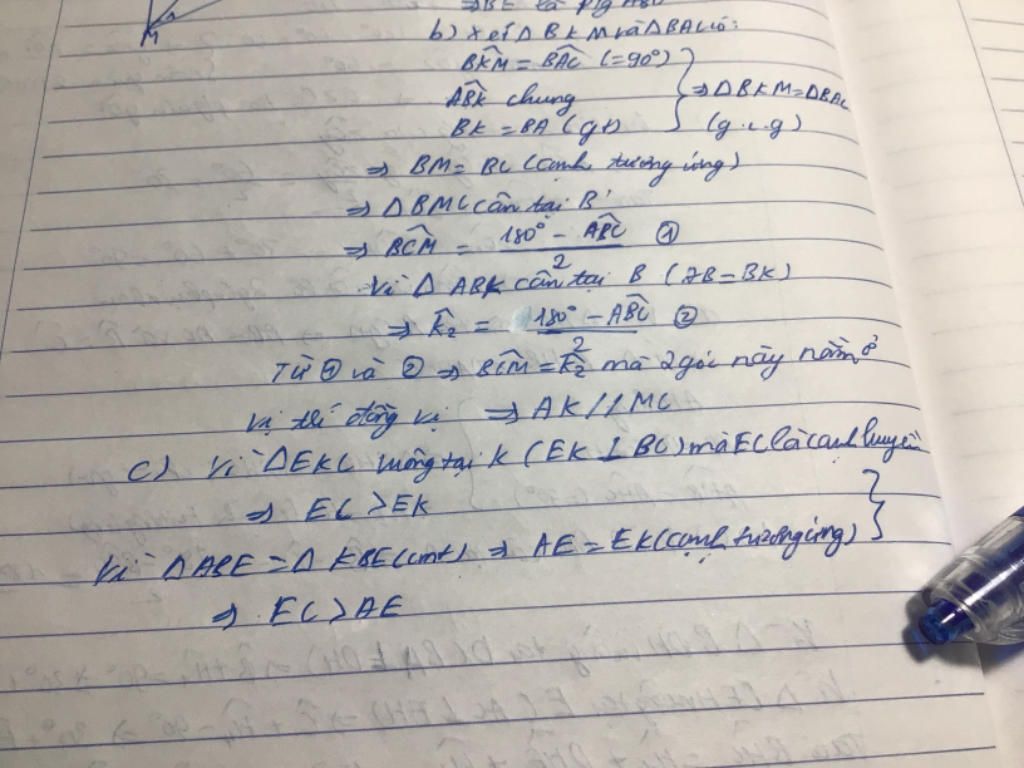 M
⇒ BE là p/g ABC
b) Xét Δ BKM và ΔBAC có:
BKM̂ = BAĈ (=90°)
ABK̂ chung
BK = BA (gt)
⇒ ΔBKM = ΔBAC
(g.c.g)
⇒ BM = BC (cạnh tương ứng)
⇒ ΔBMC cân tại B
⇒ BCM̂ = (180° - ABĈ)/2 ①
Vì Δ ABK cân tại B (AB = BK)
⇒ K̂₂ = (180° - ABĈ)/2 ②
Từ ① và ② ⇒ BCM̂ = K̂₂ mà 2 góc này nằm ở
vị trí đồng vị ⇒ AK // MC
c) Vì ΔEKC vuông tại K (EK ⊥ BC) mà EC là cạnh huyền
⇒ EC > EK
Vì ΔABE = Δ KBE (cmt) ⇒ AE = EK (cạnh tương ứng)
⇒ EC > AE